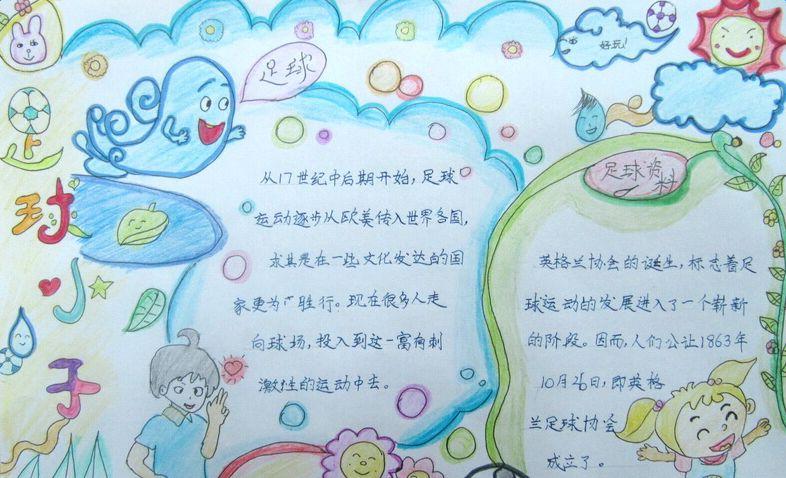 足球小子
足球
好玩!
从17世纪中后期开始，足球
运动逐步从欧美传入世界各国，
尤其是在一些文化发达的国
家更为广胜行。现在很多人走
向球场，投入到这一富有刺
激性的运动中去。
足球资料
英格兰协会的诞生，标志着足
球运动的发展进入了一个崭新
的阶段。因而，人们公让1863年
10月26日，即英格
兰足球协会
成立了。